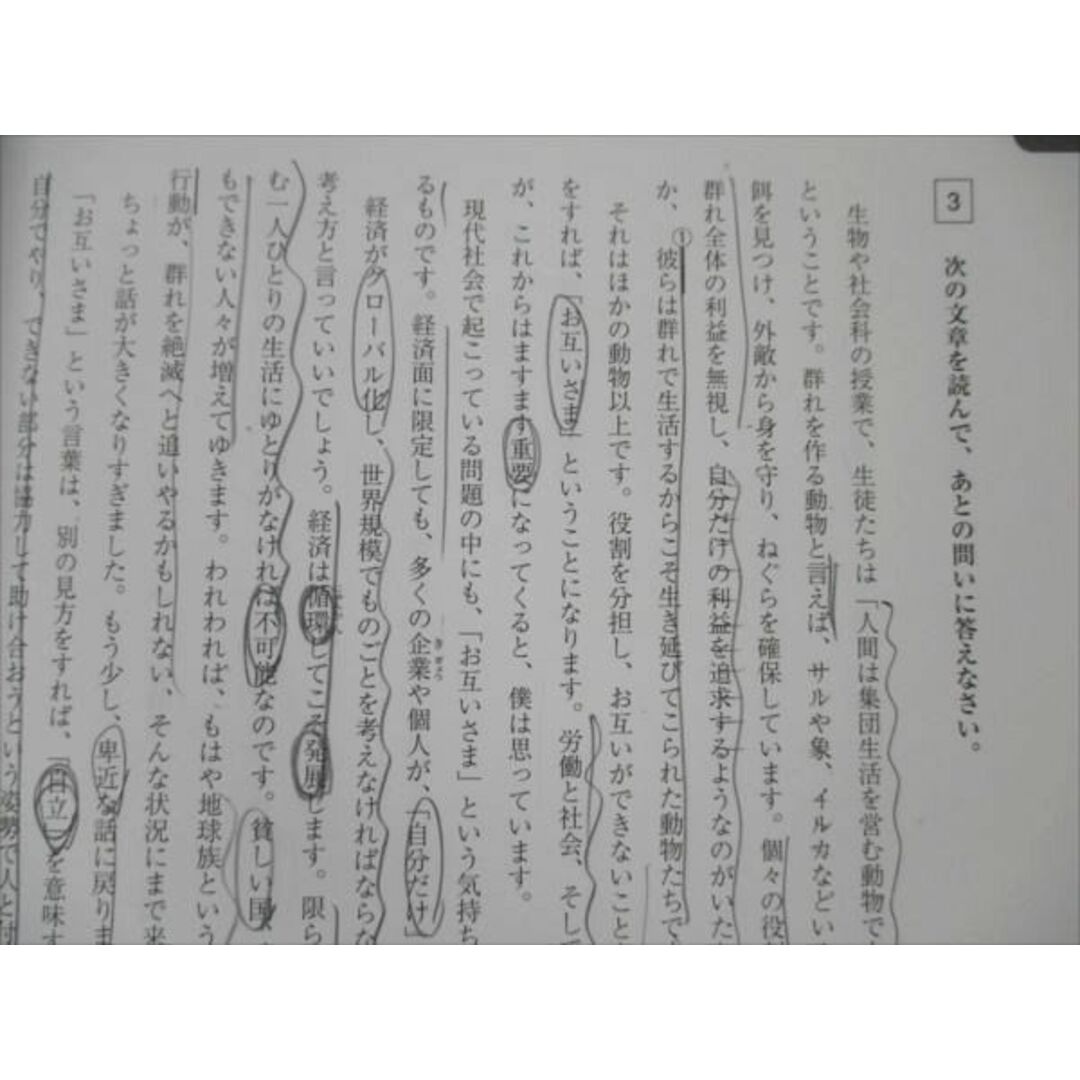 3 次の文章を読んで、あとの問いに答えなさい。
生物や社会科の授業で、生徒たちは「人間は集団生活を営む動物で
ということです。群れを作る動物と言えば、サルや象、イルカなどい
餌を見つけ、外敵から身を守り、ねぐらを確保しています。個々の役
群れ全体の利益を無視し、自分だけの利益を追求するようなのがいた
か、①彼らは群れで生活するからこそ生き延びてこられた動物たちで
それはほかの動物以上です。役割を分担し、お互いができないこと
をすれば、「お互いさま」ということになります。労働と社会、そし
が、これからはますます重要になってくると、僕は思っています。
現代社会で起こっている問題の中にも、「お互いさま」という気持
るものです。経済面に限定しても、多くの企業や個人が、「自分だけ」
きぎょう
経済がグローバル化し、世界規模でものごとを考えなければならな
考え方と言っていいでしょう。経済は循環してこそ発展します。限ら
む一人ひとりの生活にゆとりがなければ不可能なのです。貧しい国
もできない人々が増えてゆきます。われわれは、もはや地球族という
行動が、群れを絶滅へと追いやるかもしれない、そんな状況にまで来
ちょっと話が大きくなりすぎました。もう少し、卑近な話に戻りま
「お互いさま」という言葉は、別の見方をすれば、「自立」を意味す
自分でやり、できない部分は協力して助け合おうという姿勢で人と付